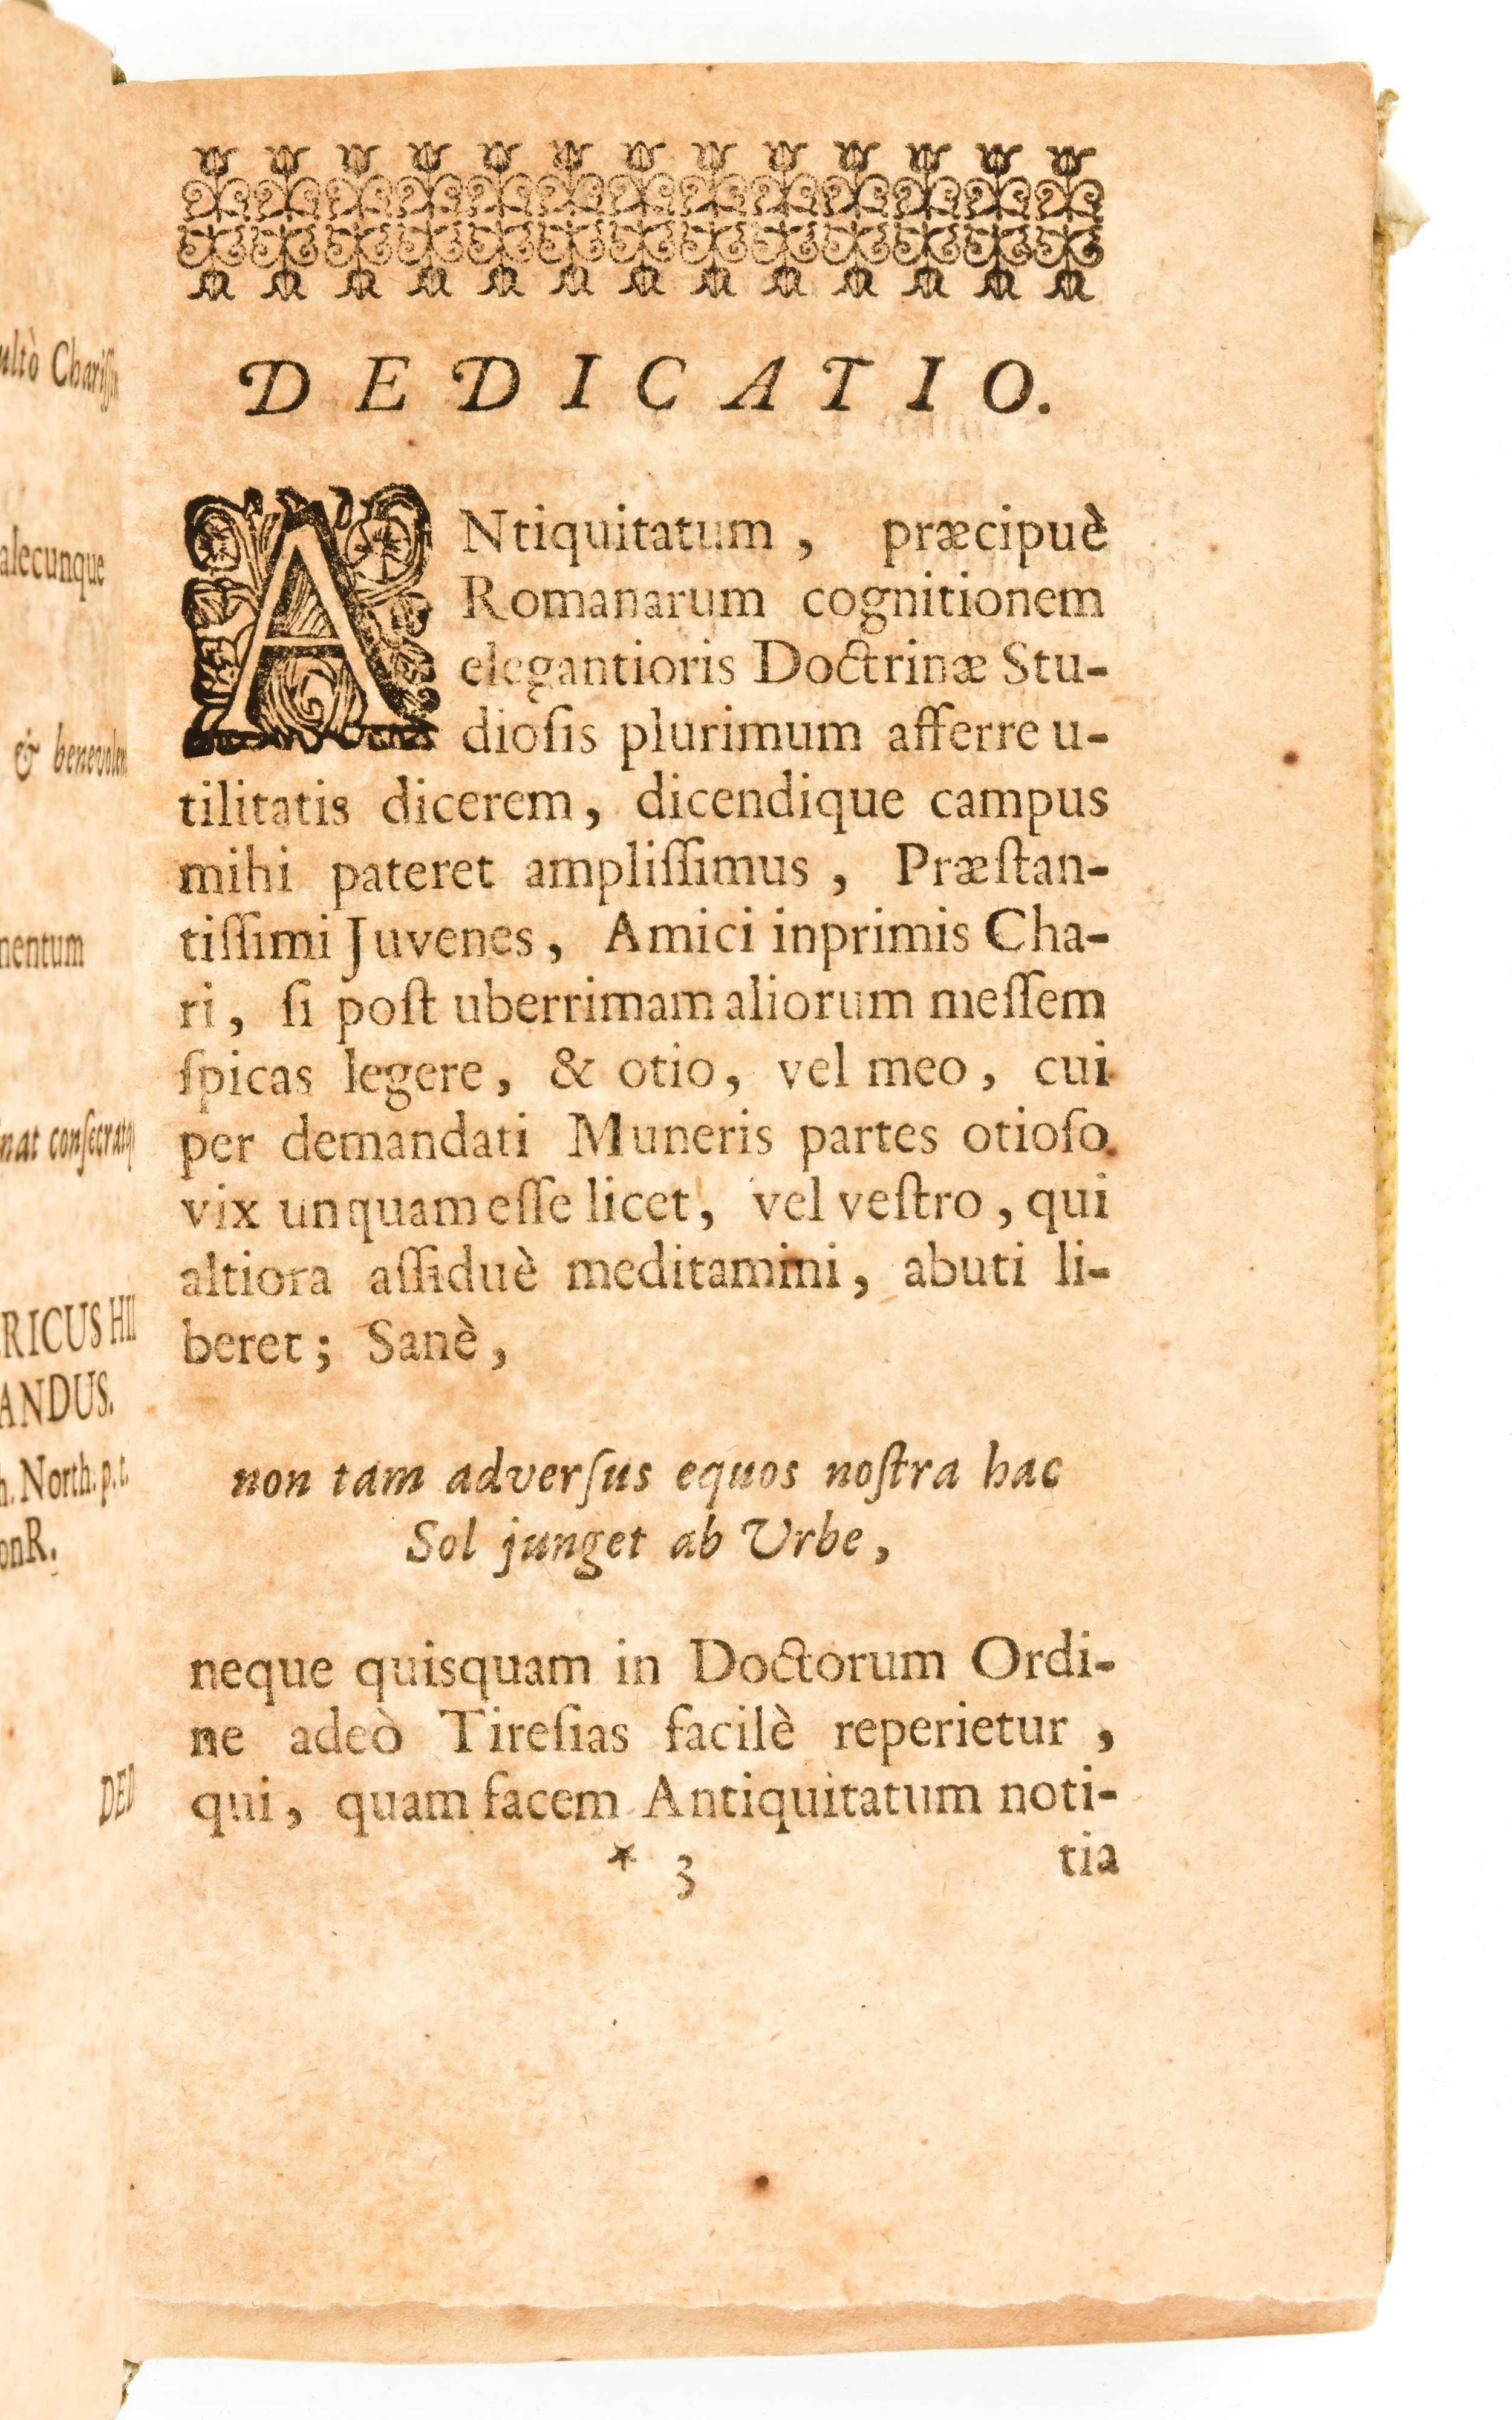 ultò Chariss
alecunque
& benevolen
nentum
nat consecratq
RICUS HIL
ANDUS.
h. North. p. t.
onR.
DED
DEDICATIO.
ANtiquitatum, præcipuè
Romanarum cognitionem
elegantioris Doctrinæ Stu-
dioſis plurimum afferre u-
tilitatis dicerem, dicendique campus
mihi pateret ampliſſimus, Præſtan-
tiſſimi Juvenes, Amici inprimis Cha-
ri, ſi poſt uberrimam aliorum meſſem
ſpicas legere, & otio, vel meo, cui
per demandati Muneris partes otioſo
vix unquam eſſe licet, vel veſtro, qui
altiora aſſiduè meditamini, abuti li-
beret; Sanè,
non tam adverſus equos noſtra hac
Sol junget ab Urbe,
neque quisquam in Doctorum Ordi-
ne adeò Tireſias facilè reperietur,
qui, quam facem Antiquitatum noti-
* 3 tia